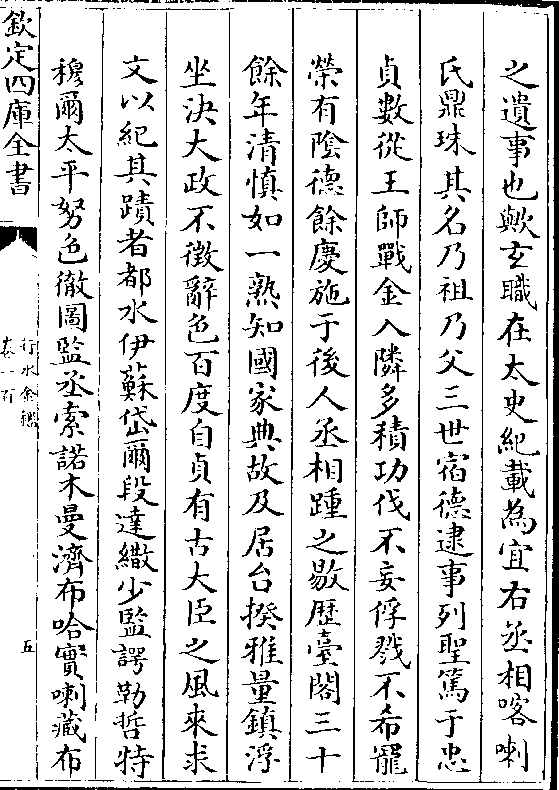 之遺事也歟玄職在太史紀載為宜右丞相喀喇
氏鼎珠其名乃祖乃父三世宿德逮事列聖篤于忠
貞數從王師戰金入隣多積功伐不妄俘戮不希寵
榮有陰德餘慶施于後人丞相踵之敭歴臺閣三十
餘年清慎如一熟知國家典故及居台揆雅量鎮浮
坐決大政不徴辭色百度自貞有古大臣之風來求
文以紀其蹟者都水伊蘇岱爾段達繖少監諤勒哲特
穆爾太平努色徹圖監丞索諾木曼濟布哈實喇藏布
欽定四庫全書
行水金鑑
卷一百
五